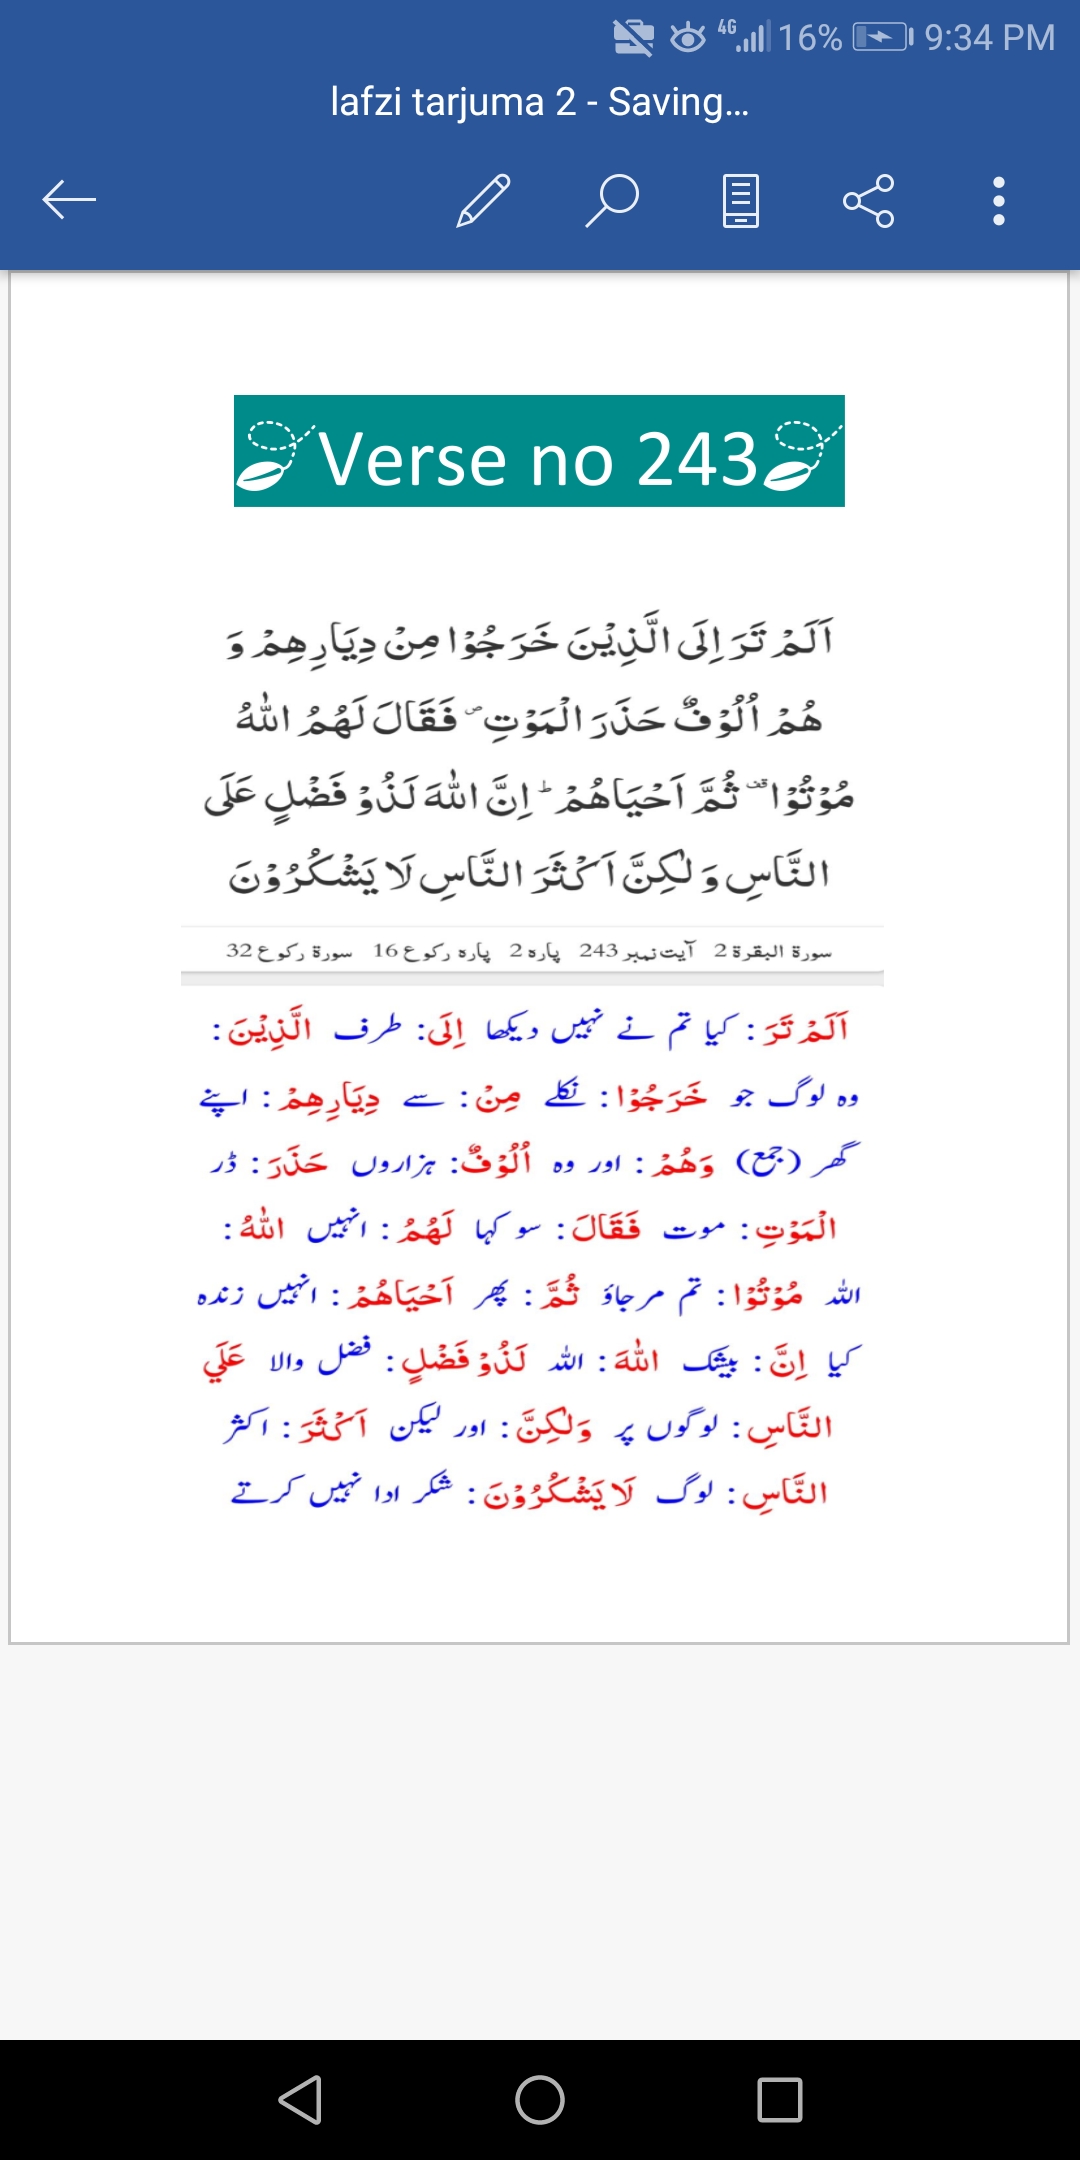 4G 16% 9:34 PM
lafzi tarjuma 2 - Saving...
Verse no 243
اَلَمْ تَرَ اِلَى الَّذِيْنَ خَرَجُوْا مِنْ دِيَارِهِمْ وَ
هُمْ اُلُوْفٌ حَذَرَ الْمَوْتِ ۠ فَقَالَ لَهُمُ اللّٰهُ
مُوْتُوْا ۣ ثُمَّ اَحْيَاھُمْ ۭ اِنَّ اللّٰهَ لَذُوْ فَضْلٍ عَلَى
النَّاسِ وَ لٰكِنَّ اَكْثَرَ النَّاسِ لَا يَشْكُرُوْنَ
سورة البقرة 2 آیت نمبر 243 پارہ 2 پارہ رکوع 16 سورة رکوع 32
اَلَمْ تَرَ : کیا تم نے نہیں دیکھا اِلَى: طرف الَّذِيْنَ :
وہ لوگ جو خَرَجُوْا : نکلے مِنْ : سے دِيَارِھِمْ : اپنے
گھر (جمع) وَھُمْ : اور وہ اُلُوْفٌ: ہزاروں حَذَرَ : ڈر
الْمَوْتِ : موت فَقَالَ : سو کہا لَهُمُ : انہیں اللّٰهُ :
اللہ مُوْتُوْا : تم مرجاؤ ثُمَّ : پھر اَحْيَاھُمْ : انہیں زندہ
کیا اِنَّ : بیشک اللّٰهَ : اللہ لَذُوْ فَضْلٍ : فضل والا عَلَي
النَّاسِ : لوگوں پر وَلٰكِنَّ : اور لیکن اَكْثَرَ : اکثر
النَّاسِ : لوگ لَا يَشْكُرُوْنَ : شکر ادا نہیں کرتے